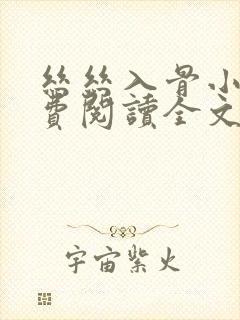 丝丝入骨小
费阅读全文
宇宙紫火